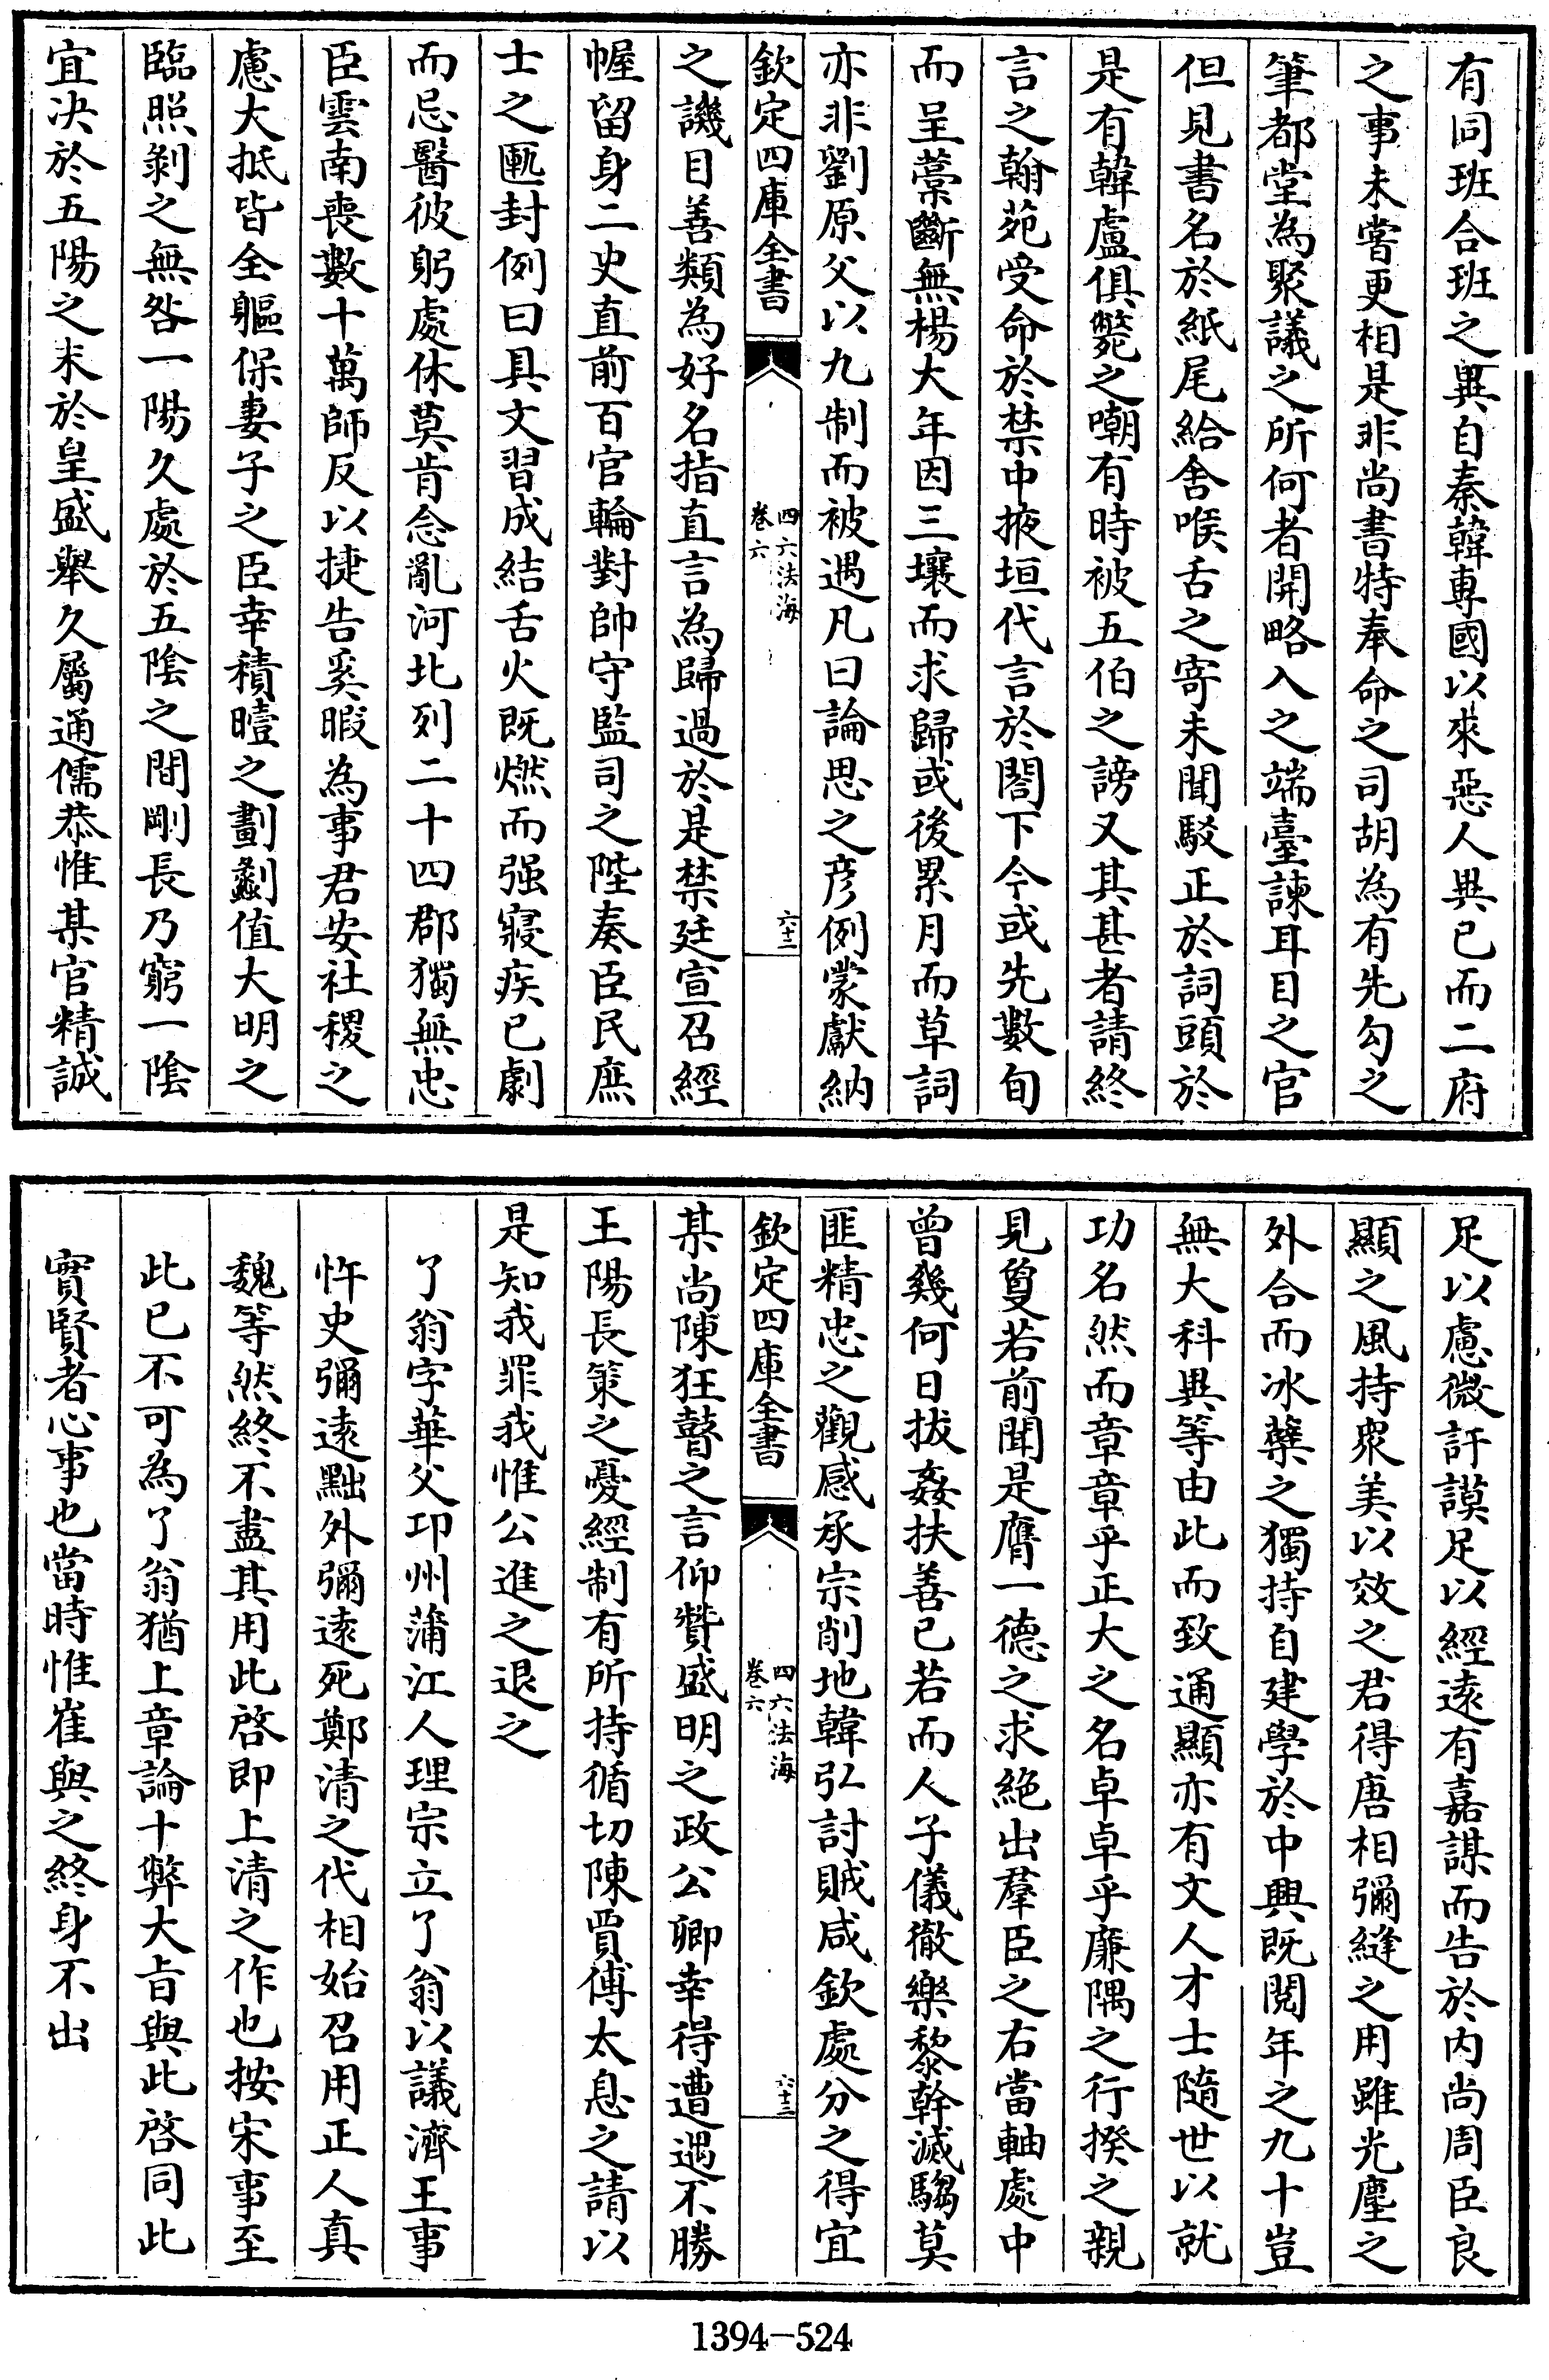 有同班合班之異自秦韓專國以來惡人異已而二府
之事未嘗更相是非尚書特奉命之司胡為有先勾之
筆都堂為聚議之所何者開略入之端臺諫耳目之官
但見書名於紙尾給舍喉舌之寄未聞駁正於詞頭於
是有韓盧俱斃之嘲有時被五伯之謗又其甚者請終
言之翰苑受命於禁中掖垣代言於閤下今或先數旬
而呈藁斷無楊大年因三壤而求歸或後累月而草詞
亦非劉原父以九制而被遇凡曰論思之彥例蒙獻納
欽定四庫全書
四六法海
卷六
六十二
之譏目善類為好名指直言為歸過於是禁廷宣召經
幄留身二史直前百官輪對帥守監司之陛奏臣民庶
士之匭封例曰具文習成結舌火既燃而强寢疾已劇
而忌醫彼躬處休莫肯念亂河北列二十四郡獨無忠
臣雲南喪數十萬師反以捷告奚暇為事君安社稷之
慮大抵皆全軀保妻子之臣幸積曀之劃蠲值大明之
臨照剝之無咎一陽久處於五陰之間剛長乃窮一陰
宜决於五陽之末於皇盛舉久屬通儒恭惟某官精誠
足以慮微訏謨足以經遠有嘉謀而告於内尚周臣良
顯之風持衆美以效之君得唐相彌縫之用雖光塵之
外合而冰蘖之獨持自建學於中興既閱年之九十豈
無大科異等由此而致通顯亦有文人才士隨世以就
功名然而章章乎正大之名卓卓乎廉隅之行揆之親
見敻若前聞是膺一德之求絶出羣臣之右當軸處中
曾幾何日拔姦扶善已若而人子儀徹樂黎幹滅騶莫
匪精忠之觀感承宗削地韓弘討賊咸欽處分之得宜
欽定四庫全書
四六法海
卷六
六十三
某尚陳狂瞽之言仰贊盛明之政公卿幸得遭遇不勝
王陽長策之憂經制有所持循切陳賈傅太息之請以
是知我罪我惟公進之退之
了翁字華父卭州蒲江人理宗立了翁以議濟王事
忤史彌遠黜外彌遠死鄭清之代相始召用正人真
魏等然終不盡其用此啓即上清之作也按宋事至
此已不可為了翁猶上章論十弊大㫖與此啓同此
實賢者心事也當時惟崔與之終身不出
1394-524